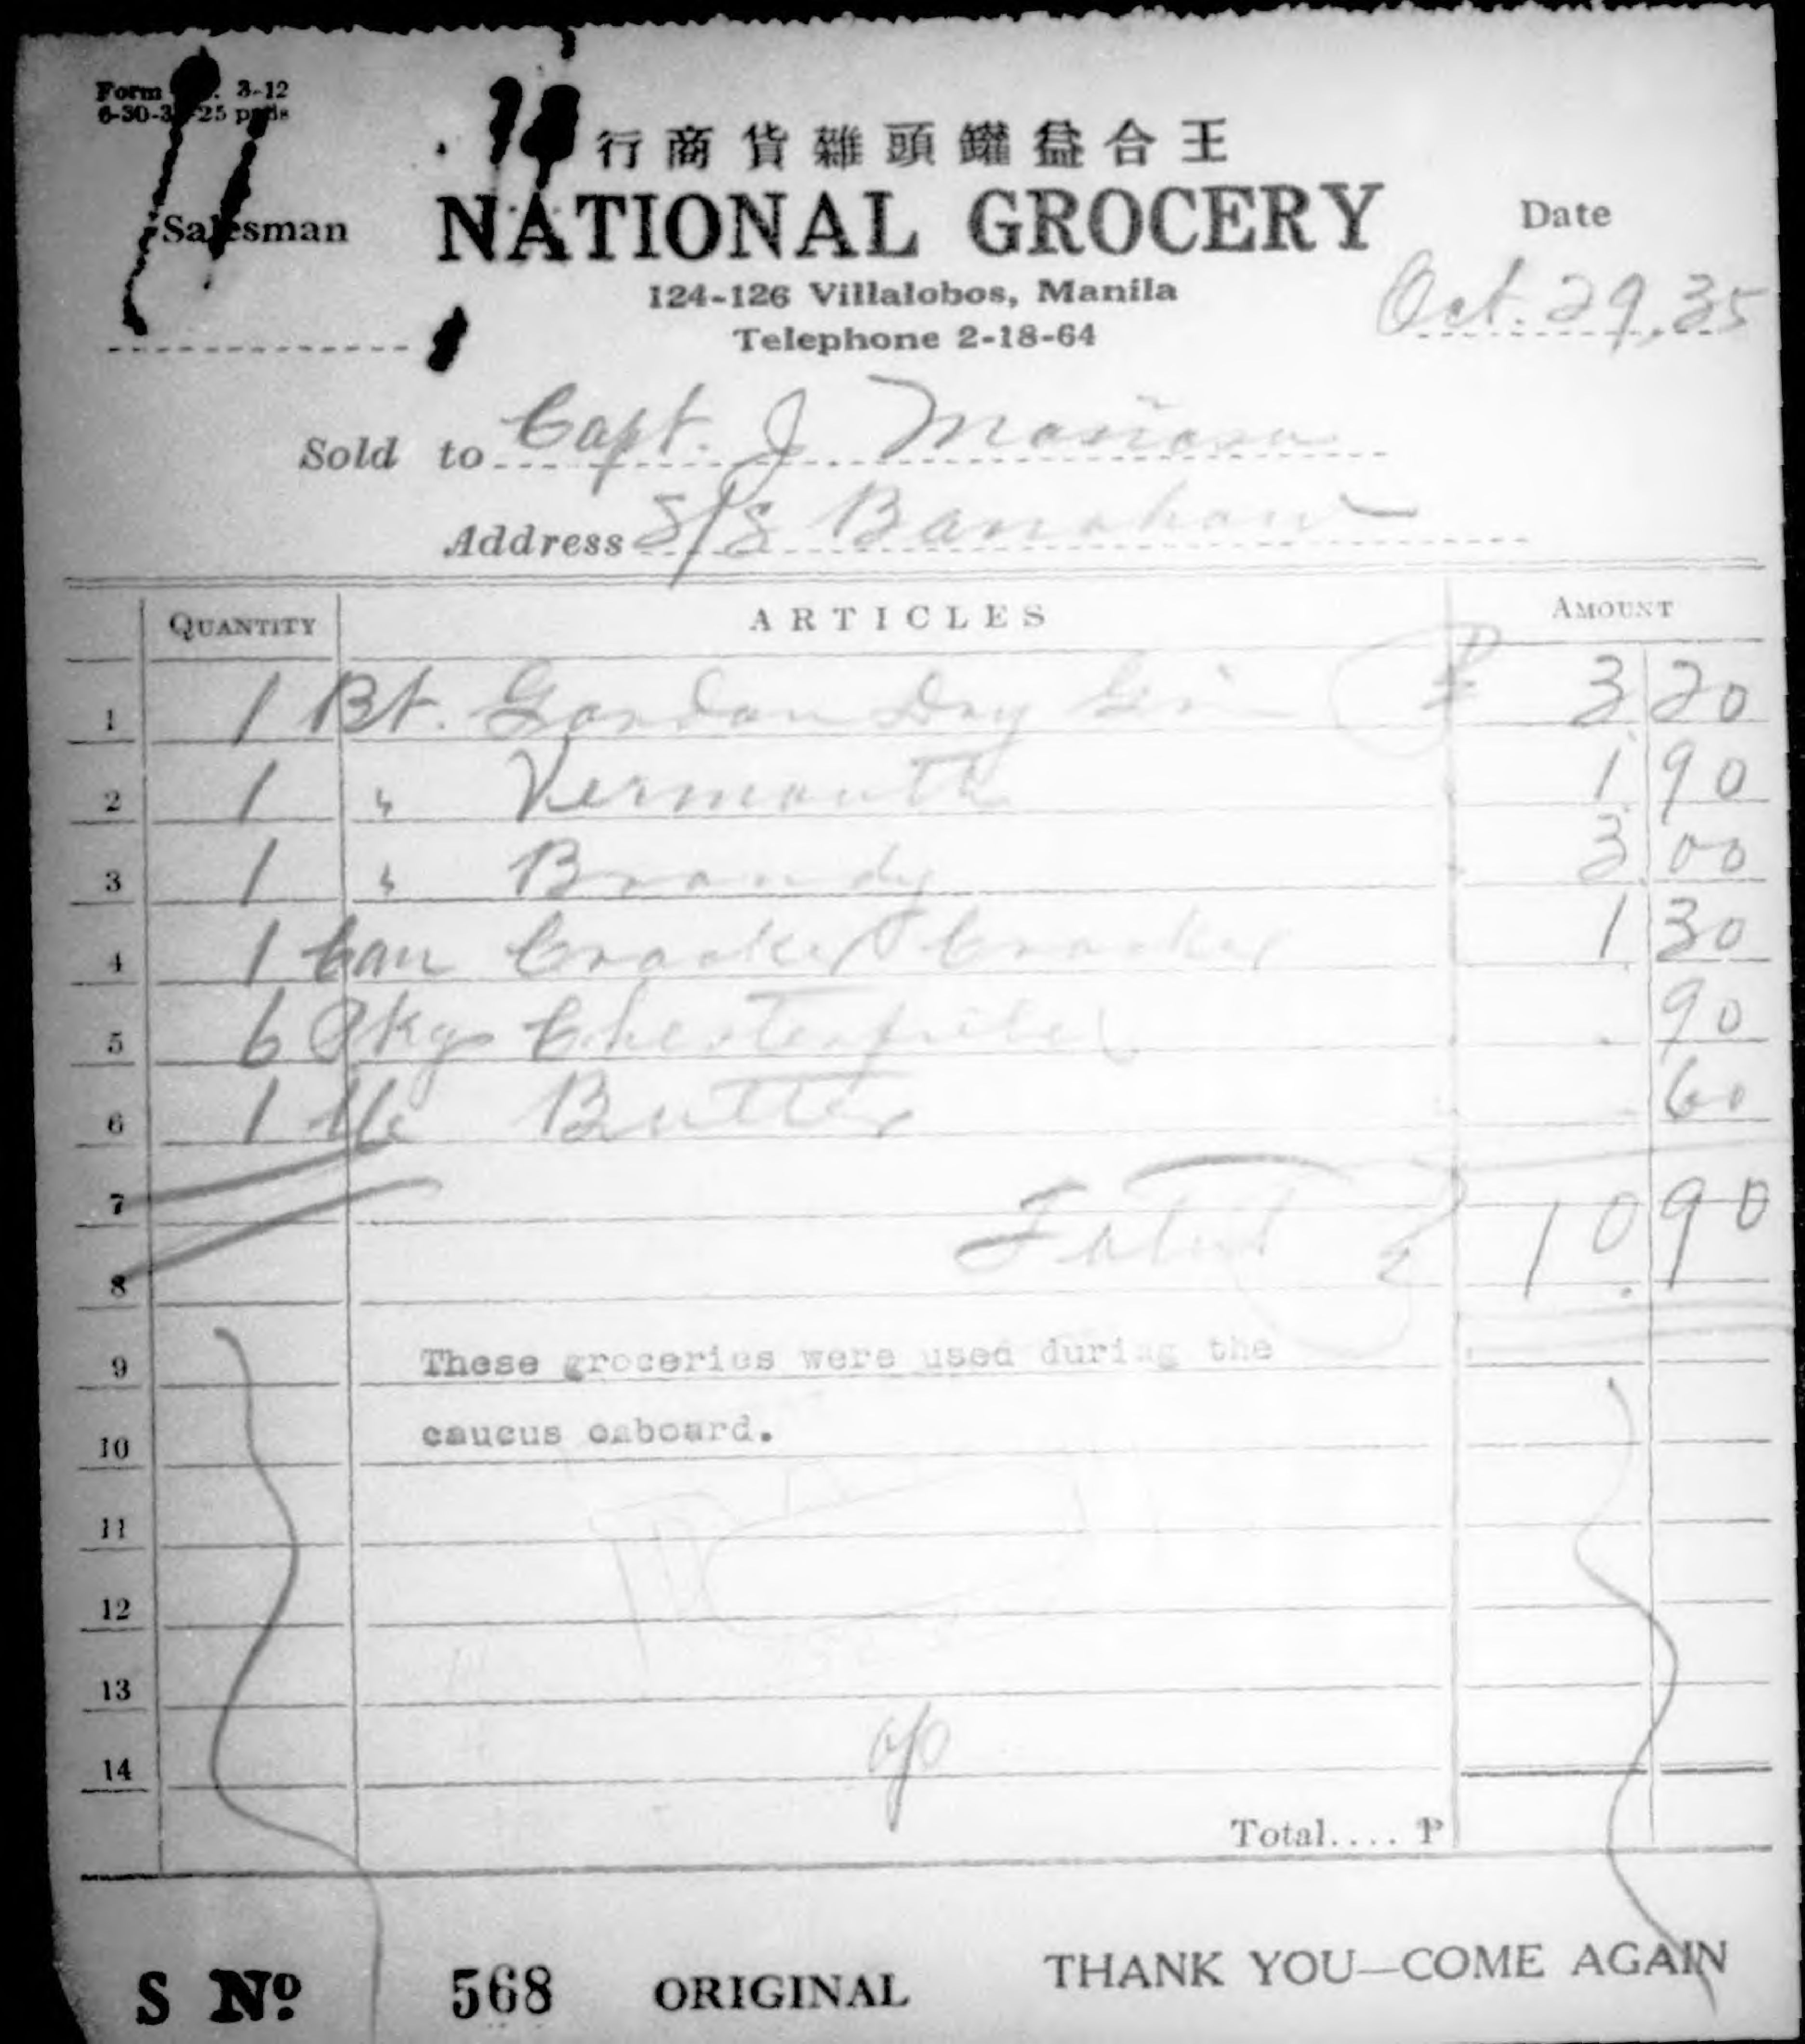 Form 3-12
6-30-3 -25 pads
行商貨雜頭罐益合王
NATIONAL GROCERY
Salesman
Date
124-126 Villalobos, Manila
Oct. 29, 35
Telephone 2-18-64
Sold to Capt. J
Address S/S Banahaw
QUANTITY ARTICLES AMOUNT
1 1 Bt. Gordon Dry Gin ₱ 3 20
2 1 " Vermouth 1 90
3 1 " Brandy 3 00
4 1 Can 1 30
5 6 Pkgs Chesterfield 90
6 1 lb Butter 60
7
Total ₱ 10.90
8
9 These groceries were used during the
10 caucus onboard.
11
12
13
14
Total.... ₱
S Nº 568 ORIGINAL THANK YOU—COME AGAIN